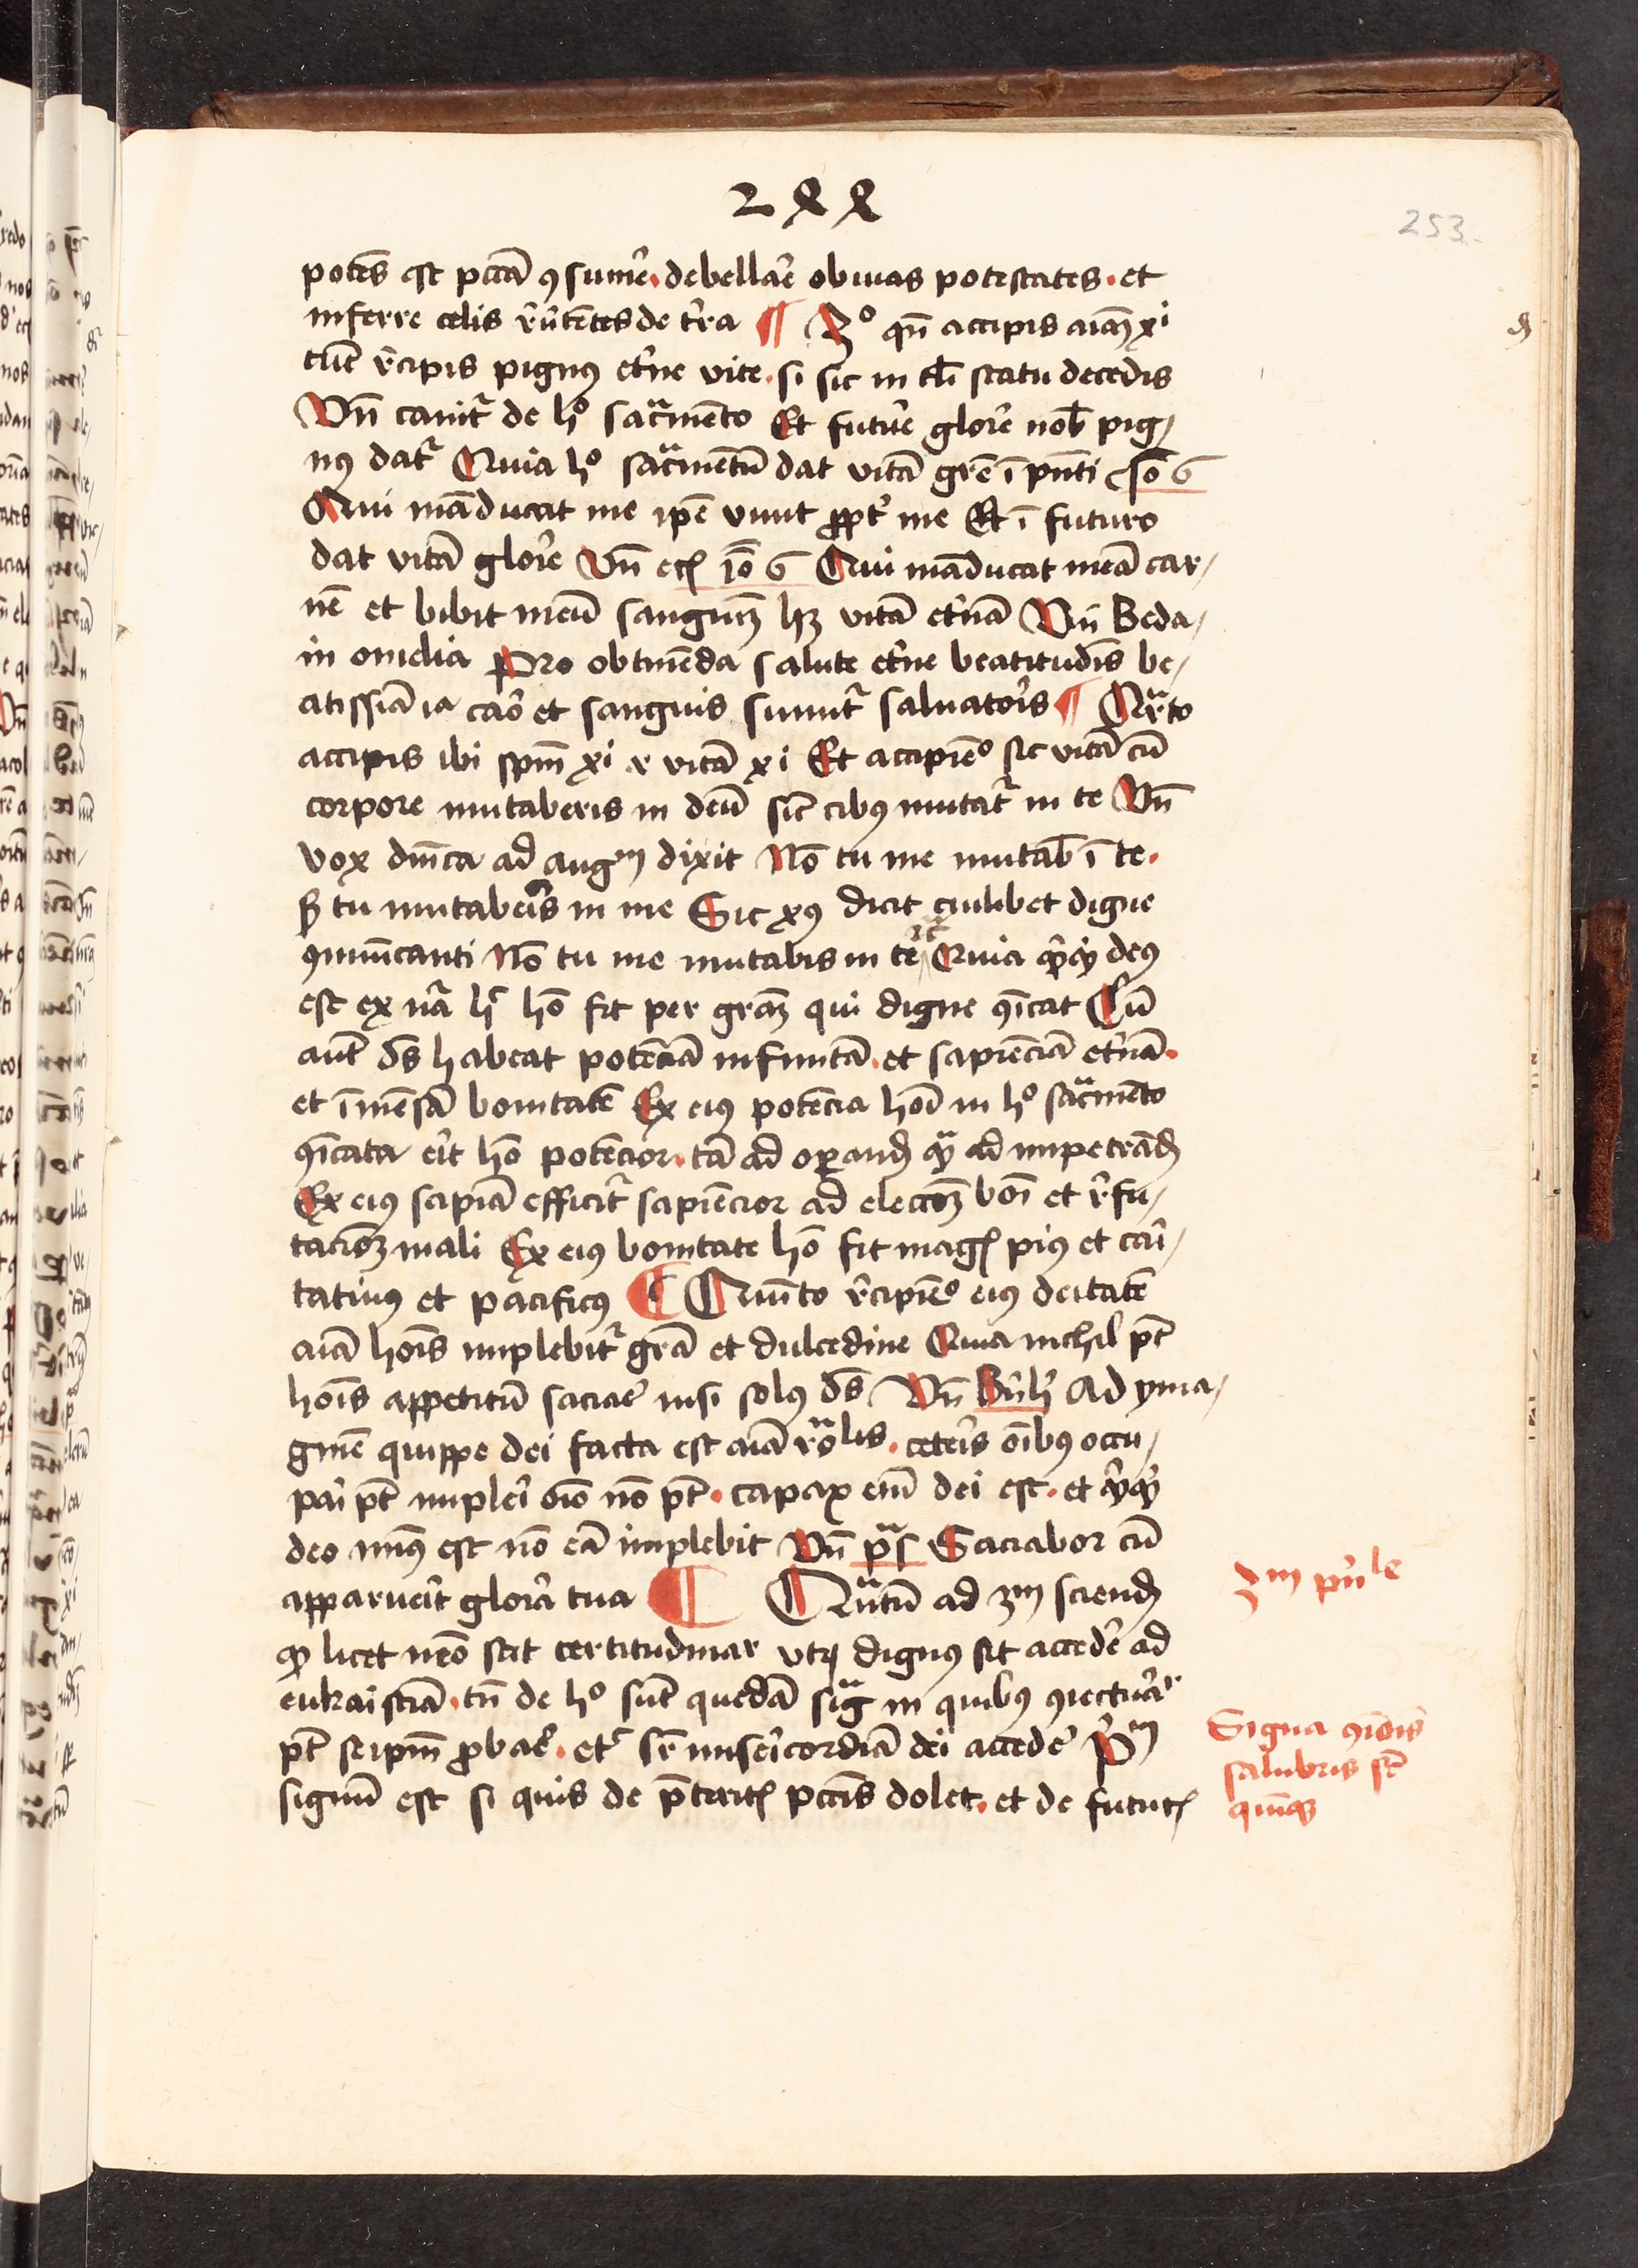 2ꝝꝝ
253.
potēs est pctā ꝯsumē· debellaꝛē obuias potestates· et
inferre celis rūtētes de tꝰra ¶ 3º qn̄ accipis aīaꝫ xⁱ
tūc rͤcipis pignꝰ etꝰne vite· si sic in tlī statu decedis
Vn̄ canitͬ de hº sacᵃmēto Et futuꝛe gloꝛē nob̄ pig/
nꝰ datͬ Quia hº sacᵃmentū dat vitā grē ī pn̄ti Io 6
Qui māducat me ipē viuit ꝓptͬ me Et ī futuro
dat vitā gloꝛē Vn̄ ecꝭ Io 6 Qui māducat meā car/
nē et bibit meū sanguinꝫ hꝫ vitā etꝰnā Vn̄ Beda/
in omelia Pro obtinēda salute etꝰne beatitudīs be/
atissīa ia caꝛo et sanguis sumitͬ saluatoꝛis ¶ Qᵃrto
accipis ibi spm̄ xi ⁊ vitā xi Et accipiēº sic vitā cū
corpore mutaberis in deū sic̄ cibꝰ mutatͬ in te Vn̄
vox dn̄ica ad augᵐ dixit Nō tu me mutab̄ ī te·
ꝭ tu mutabeꝛis in me Sic xꝰ dicit cuilibet digne
ꝯmūicanti Nō tu me mutabis in te Quia qͥcqͥd deꝰ
est ex nᵃ hͦ hō fit per graꝫ qui digne ꝯīcat Cū
aūt ds̄ habeat potēciā infinitā· et sapiēciā etꝰnā·
et īmēsā bonitatē Ex eiꝰ potēcia hoī in hº sacᵃmēto
ꝯīcata eꝛit hō potēcior· tā ad opͣandꝭ qᵃ ad impetrādꝭ
Ex eiꝰ sapīa efficitͬ sapiēcior ad eleccōꝫ boī et rͤfu/
tacōꝫ mali Ex eiꝰ bonitate hō fit magꝭ piꝰ et caꝛi/
tatiuꝰ et pacificꝰ ¶ Quīto rͤcipiēº eiꝰ deitatē
aīa hoīs implebitͬ grā et dulcedine Quia nichil pt̄
hoīs appetitū saciaꝛe nisi solꝰ ds̄ Vn̄ Bꝰnhꝰ Ad yma/
ginē quippe dei facta est aīa roᵃlis· ceteꝛis oībꝰ occu/
paꝛi pt̄ impleꝛi oīo nō pt̄· capax enī dei est· et qͥcqͥd
deo minꝰ est nō eā implebit Vn̄ pᵃs Saciabor cū
apparueꝛit gloꝛia tua ¶ Qᵃntū ad 3ᵐ sciendꝭ
ꝙ licet nēo scit certitudinar vtꝝ dignꝰ sit accedē ad
eukaꝛistiā· tn̄ de hº sūt quedā sigᵃ in quibꝰ ꝯiectuꝛaꝛ
pt̄ seipm̄ ꝓbaꝛe· etͬ sꝑ miseꝛicordiā dei accedē Pͥᵐ
signū est si quis de p̄teritꝭ pctīs dolet· et de futuꝛꝭ
3ᵐ pͥnᶜˡᵉ
Signa ꝯīoīs
salubris st̄
quīqꝫ